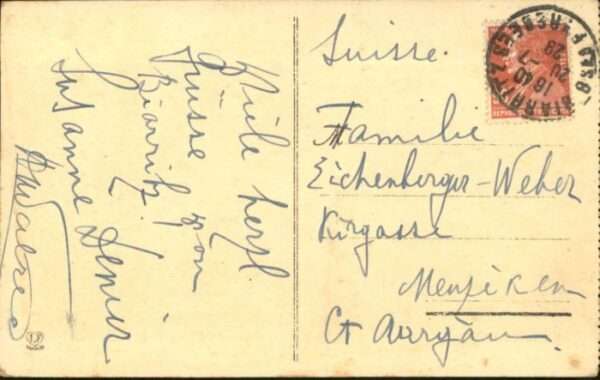 Viele herzl.
Grüsse von
Biarritz.
Susanne Denier
Suisse.
Familie
Eichenberger-Weber
Kirgasse
Menziken
Ct Aargau.
BIARRITZ
16 40
20 -7
29